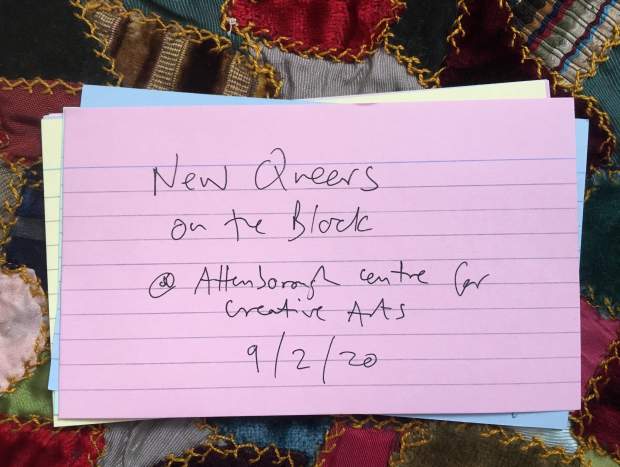 New Queers
on the Block
@ Attenborough centre for
creative Arts
9/2/20